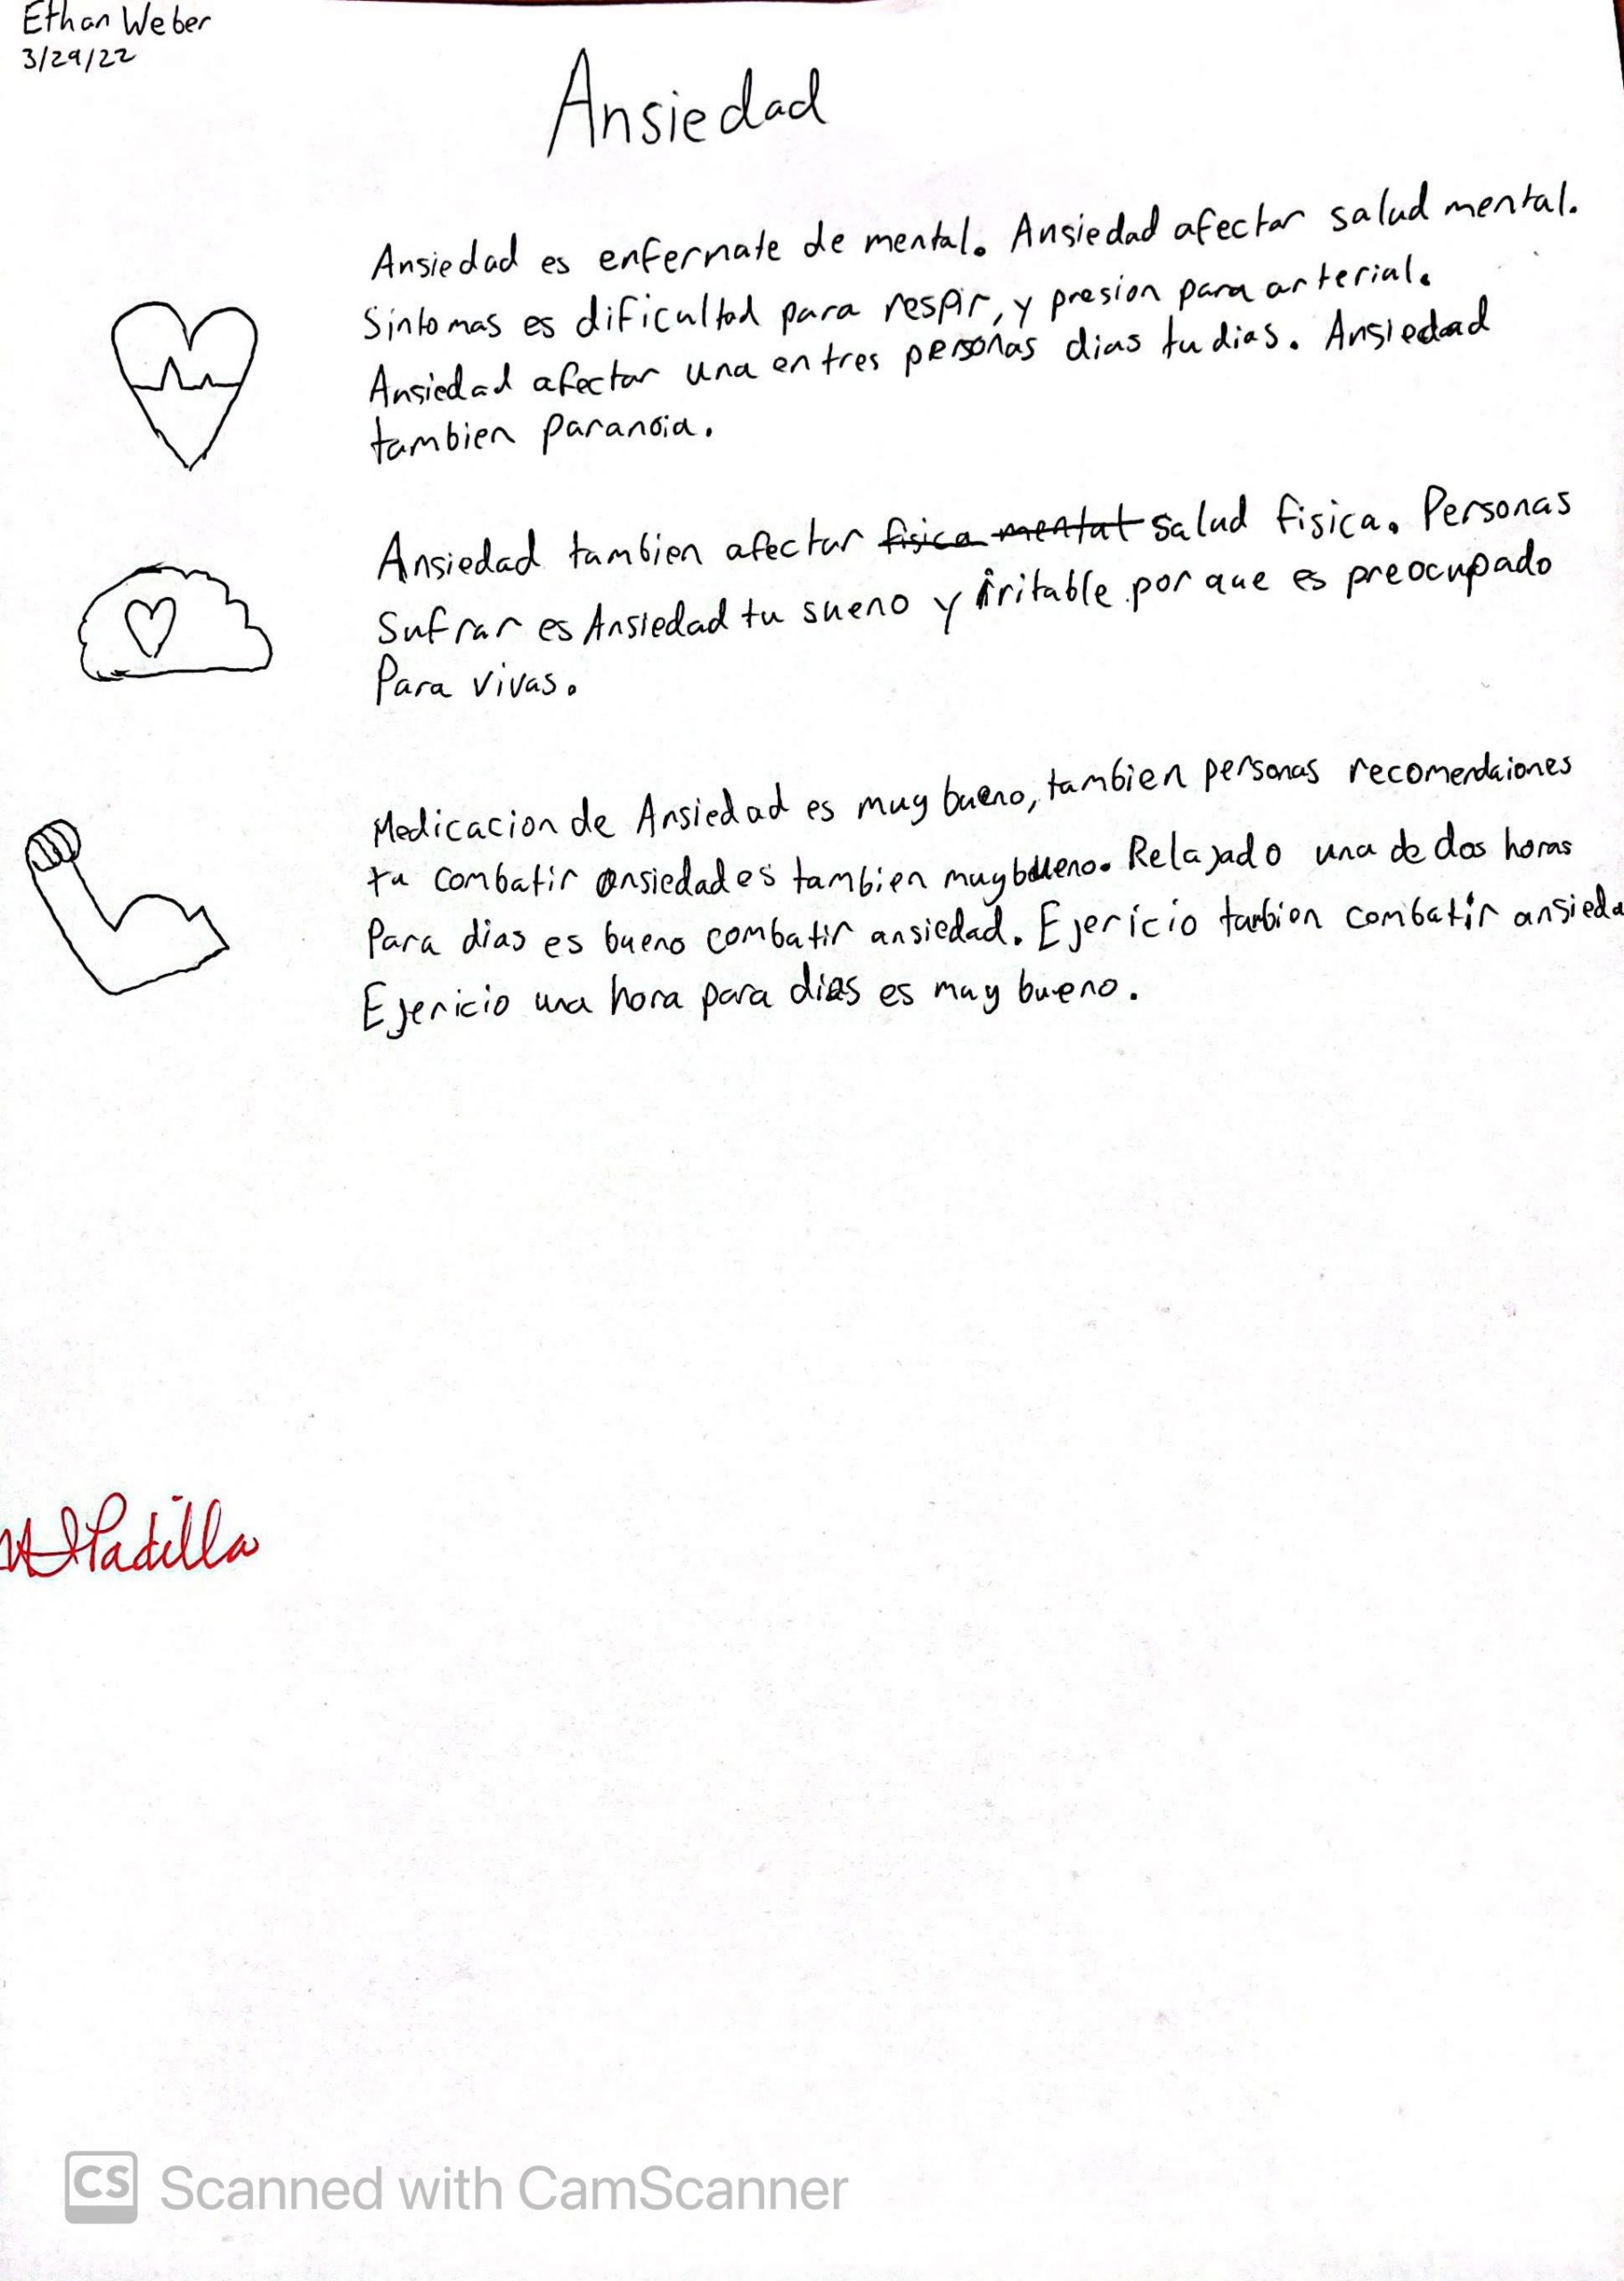 Ethan Weber
3/29/22
Ansiedad
Ansiedad es enfernate de mental. Ansiedad afectar salud mental.
Sintomas es dificultad para respir, y presion para arterial.
Ansiedad afectar una en tres personas dias tu dias. Ansiedad
tambien paranoia.
Ansiedad tambien afectar fisica mental salud fisica. Personas
Sufrar es Ansiedad tu sueno y irritable por que es preocupado
Para vivas.
Medicacion de Ansiedad es muy bueno, tambien personas recomendaiones
tu combatir ansiedad es tambien muy bueno. Relajado una de dos horas
Para dias es bueno combatir ansiedad. Ejericio tambien combatir ansieda
Ejericio una hora para dias es muy bueno.
Padilla
CS Scanned with CamScanner